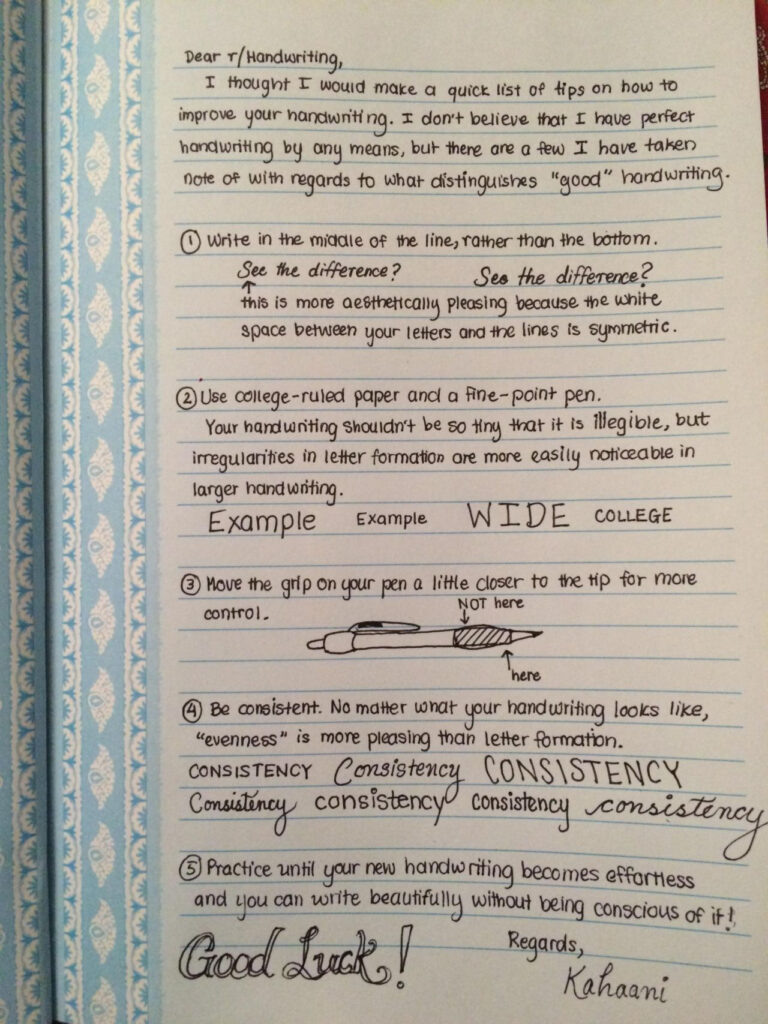 Dear r/Handwriting,
I thought I would make a quick list of tips on how to
improve your handwriting. I don't believe that I have perfect
handwriting by any means, but there are a few I have taken
note of with regards to what distinguishes "good" handwriting.
① Write in the middle of the line, rather than the bottom.
See the difference? See the difference?
↑
this is more aesthetically pleasing because the white
space between your letters and the lines is symmetric.
② Use college-ruled paper and a fine-point pen.
Your handwriting shouldn't be so tiny that it is illegible, but
irregularities in letter formation are more easily noticeable in
larger handwriting.
Example Example WIDE COLLEGE
③ Move the grip on your pen a little closer to the tip for more
control.
NOT here
here
④ Be consistent. No matter what your handwriting looks like,
"evenness" is more pleasing than letter formation.
CONSISTENCY Consistency CONSISTENCY
Consistency consistency consistency consistency
⑤ Practice until your new handwriting becomes effortless
and you can write beautifully without being conscious of it!
Good Luck!
Regards,
Kahaani